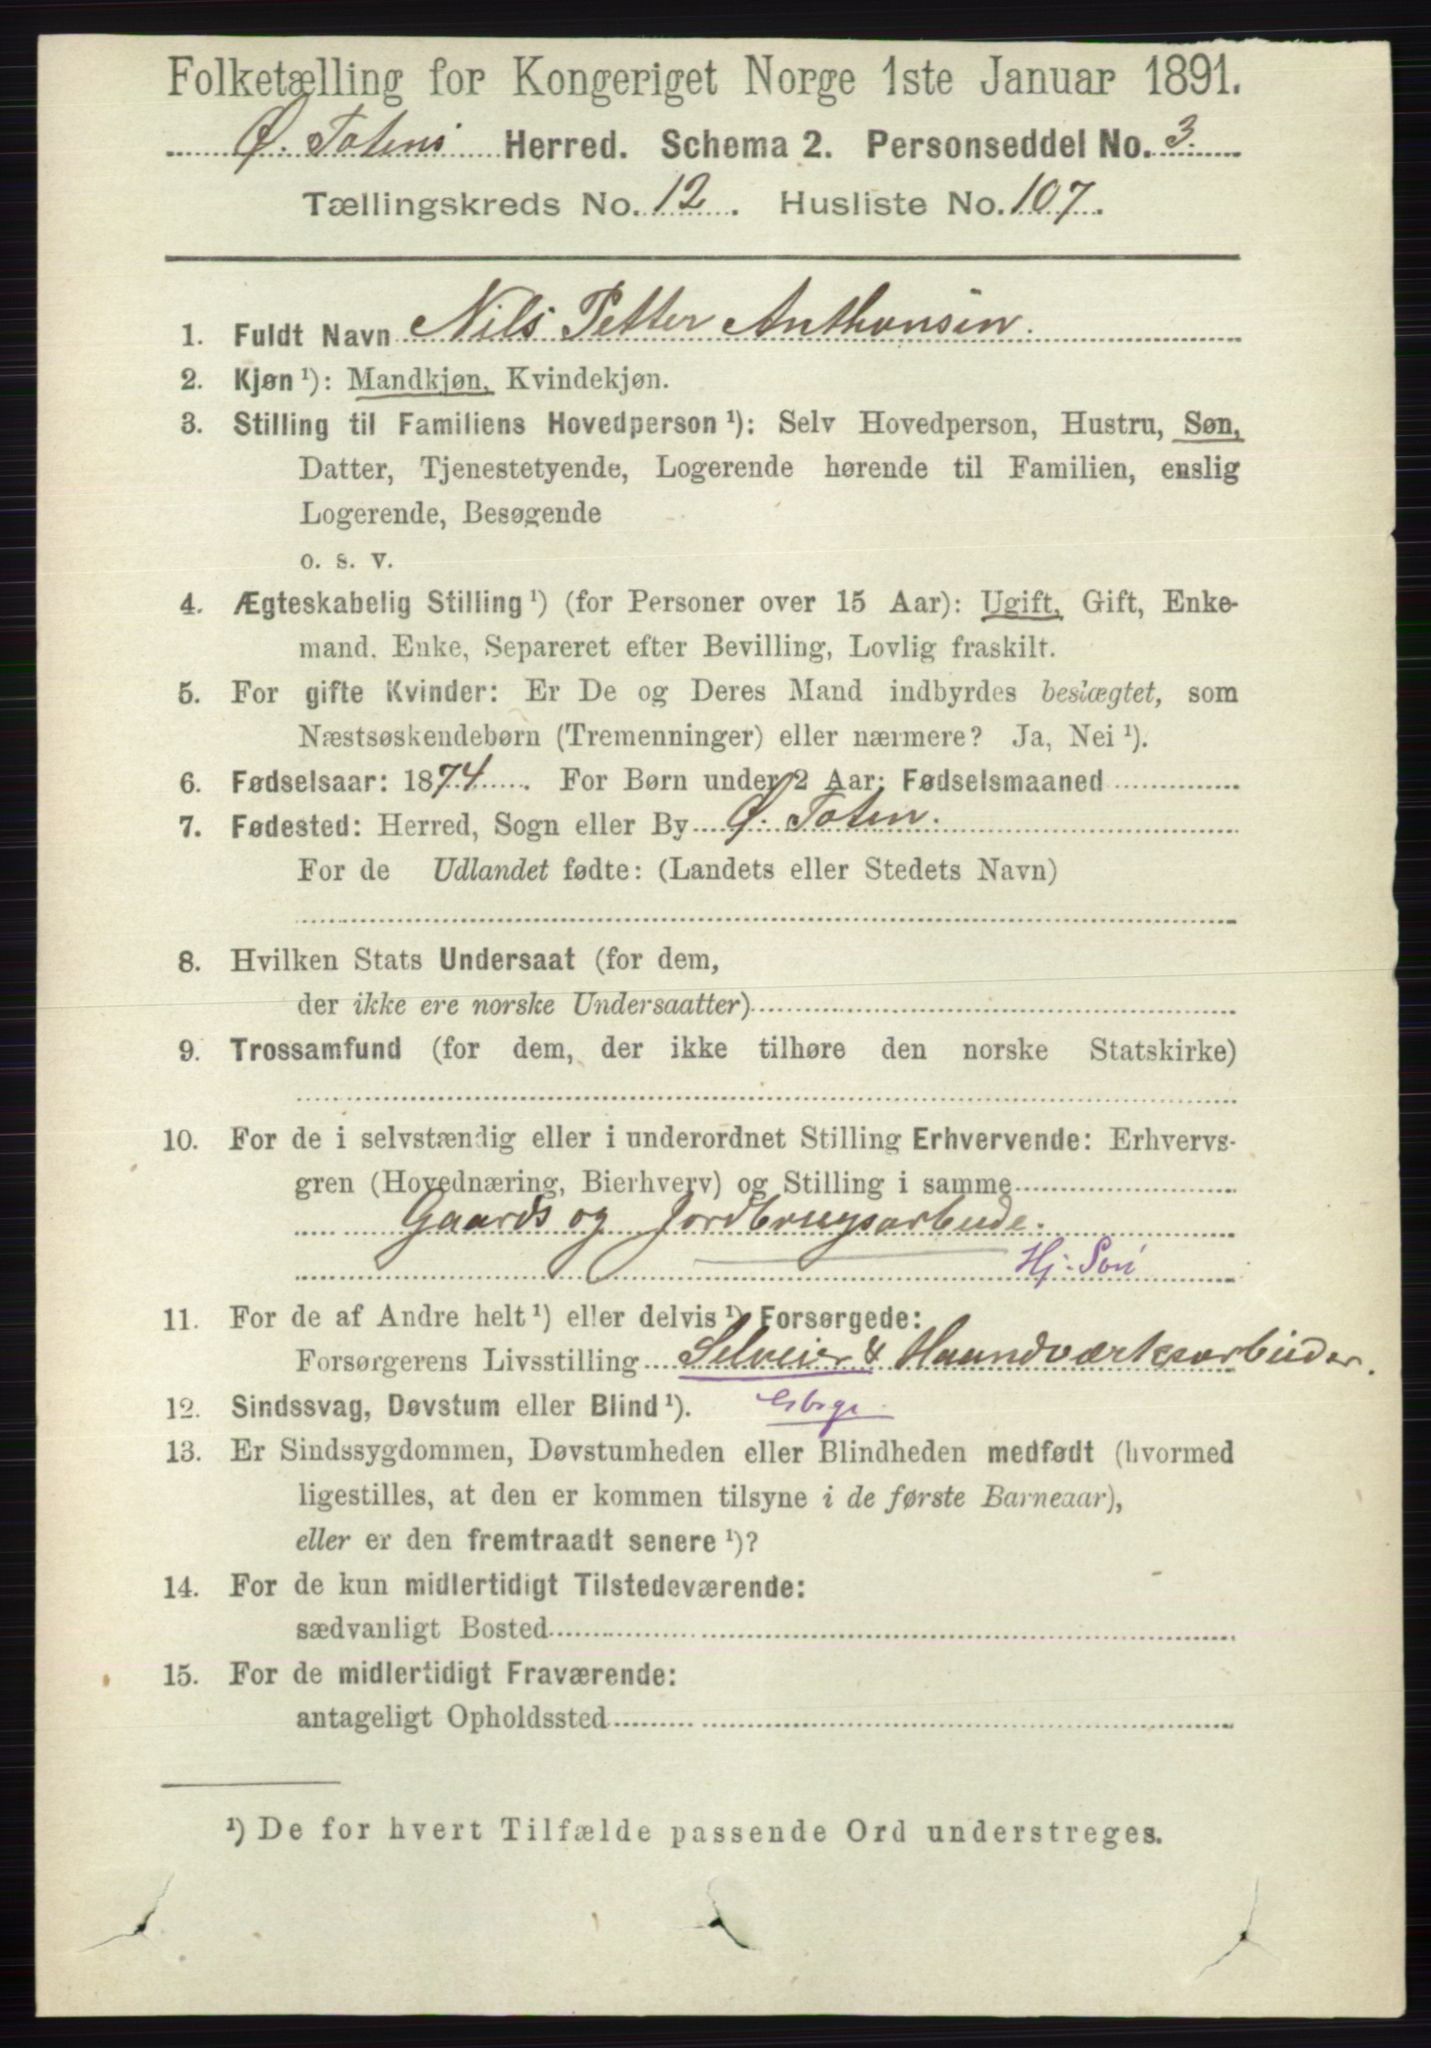 Folketælling for Kongeriget Norge 1ste Januar 1891.
Ø. Totens Herred. Schema 2. Personseddel No. 3.
Tællingskreds No. 12. Husliste No. 107.
1. Fuldt Navn Nils Petter Anthonsen.
2. Kjøn ¹): Mandkjøn, Kvindekjøn.
3. Stilling til Familiens Hovedperson ¹): Selv Hovedperson, Hustru, Søn,
Datter, Tjenestetyende, Logerende hørende til Familien, enslig
Logerende, Besøgende
o. s. v.
4. Ægteskabelig Stilling ¹) (for Personer over 15 Aar): Ugift, Gift, Enke-
mand, Enke, Separeret efter Bevilling, Lovlig fraskilt.
5. For gifte Kvinder: Er De og Deres Mand indbyrdes beslægtet, som
Næstsøskendebørn (Tremenninger) eller nærmere? Ja, Nei ¹).
6. Fødselsaar: 1874. For Børn under 2 Aar: Fødselsmaaned
7. Fødested: Herred, Sogn eller By Ø. Toten.
For de Udlandet fødte: (Landets eller Stedets Navn)
8. Hvilken Stats Undersaat (for dem,
der ikke ere norske Undersaatter)
9. Trossamfund (for dem, der ikke tilhøre den norske Statskirke)
10. For de i selvstændig eller i underordnet Stilling Erhvervende: Erhvervs-
gren (Hovednæring, Bierhverv) og Stilling i samme
Gaards og Jordbrugsarbeide.
Hj. Søn
11. For de af Andre helt ¹) eller delvis ¹) Forsørgede:
Forsørgerens Livsstilling Selveier & Haandværksarbeider.
12. Sindssvag, Døvstum eller Blind ¹).
13. Er Sindssygdommen, Døvstumheden eller Blindheden medfødt (hvormed
ligestilles, at den er kommen tilsyne i de første Barneaar),
eller er den fremtraadt senere ¹)?
14. For de kun midlertidigt Tilstedeværende:
sædvanligt Bosted
15. For de midlertidigt Fraværende:
antageligt Opholdssted
¹) De for hvert Tilfælde passende Ord understreges.